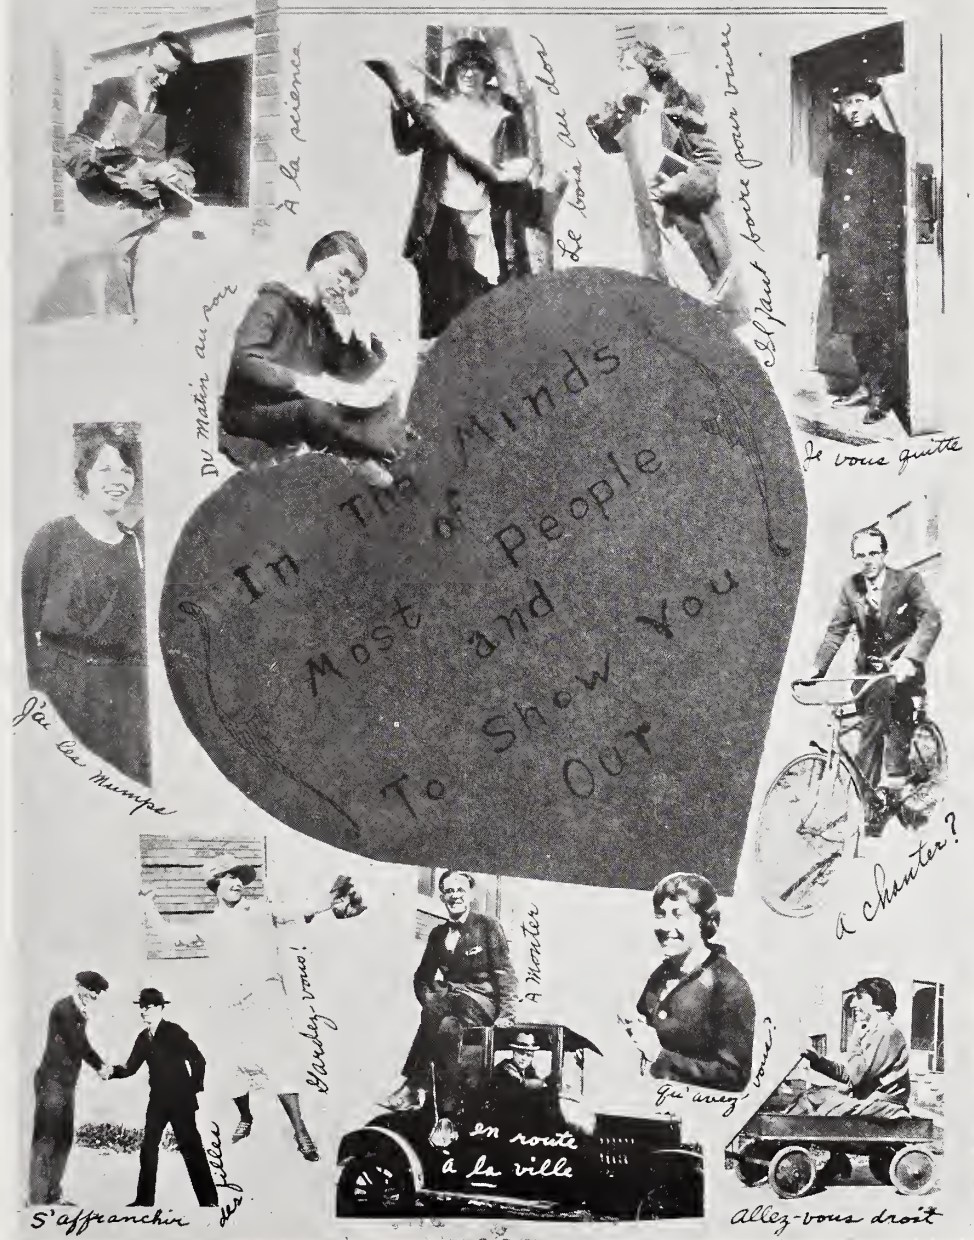 À la science
Le bois au dos
Il faut boire pour vivre
Du Matin au soir
Je vous quitte
In The Minds
of
Most People
and
To Show You
Our
J'ai les mumps
A chanter?
Gardez-vous!
À Monter
Qu'avez
vous?
en route
à la ville
S'affranchir
des filles
Allez-vous droit